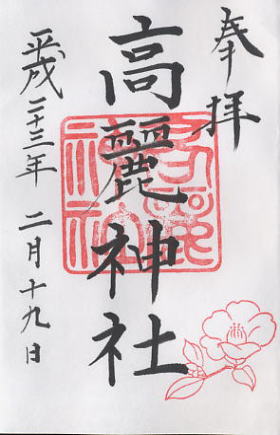 奉拝
高麗神社
平成二十三年二月十九日